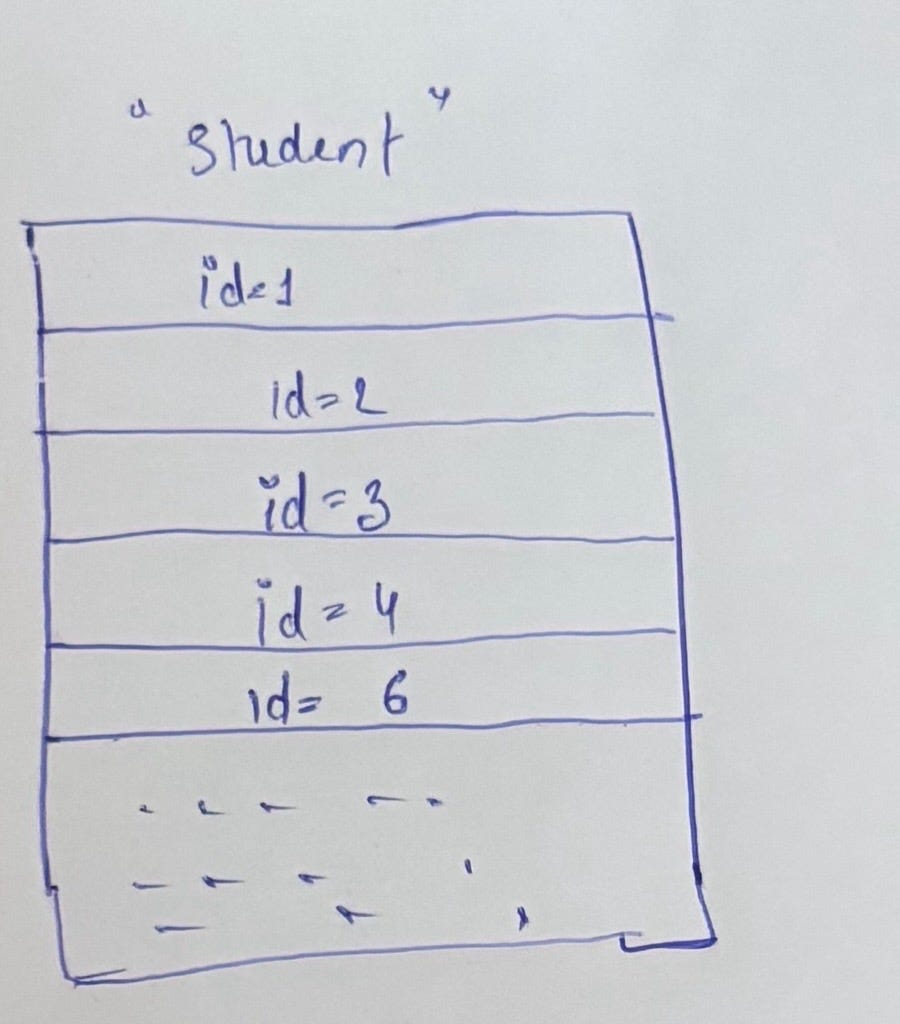 "Student"
id=1
id=2
id=3
id=4
id= 6